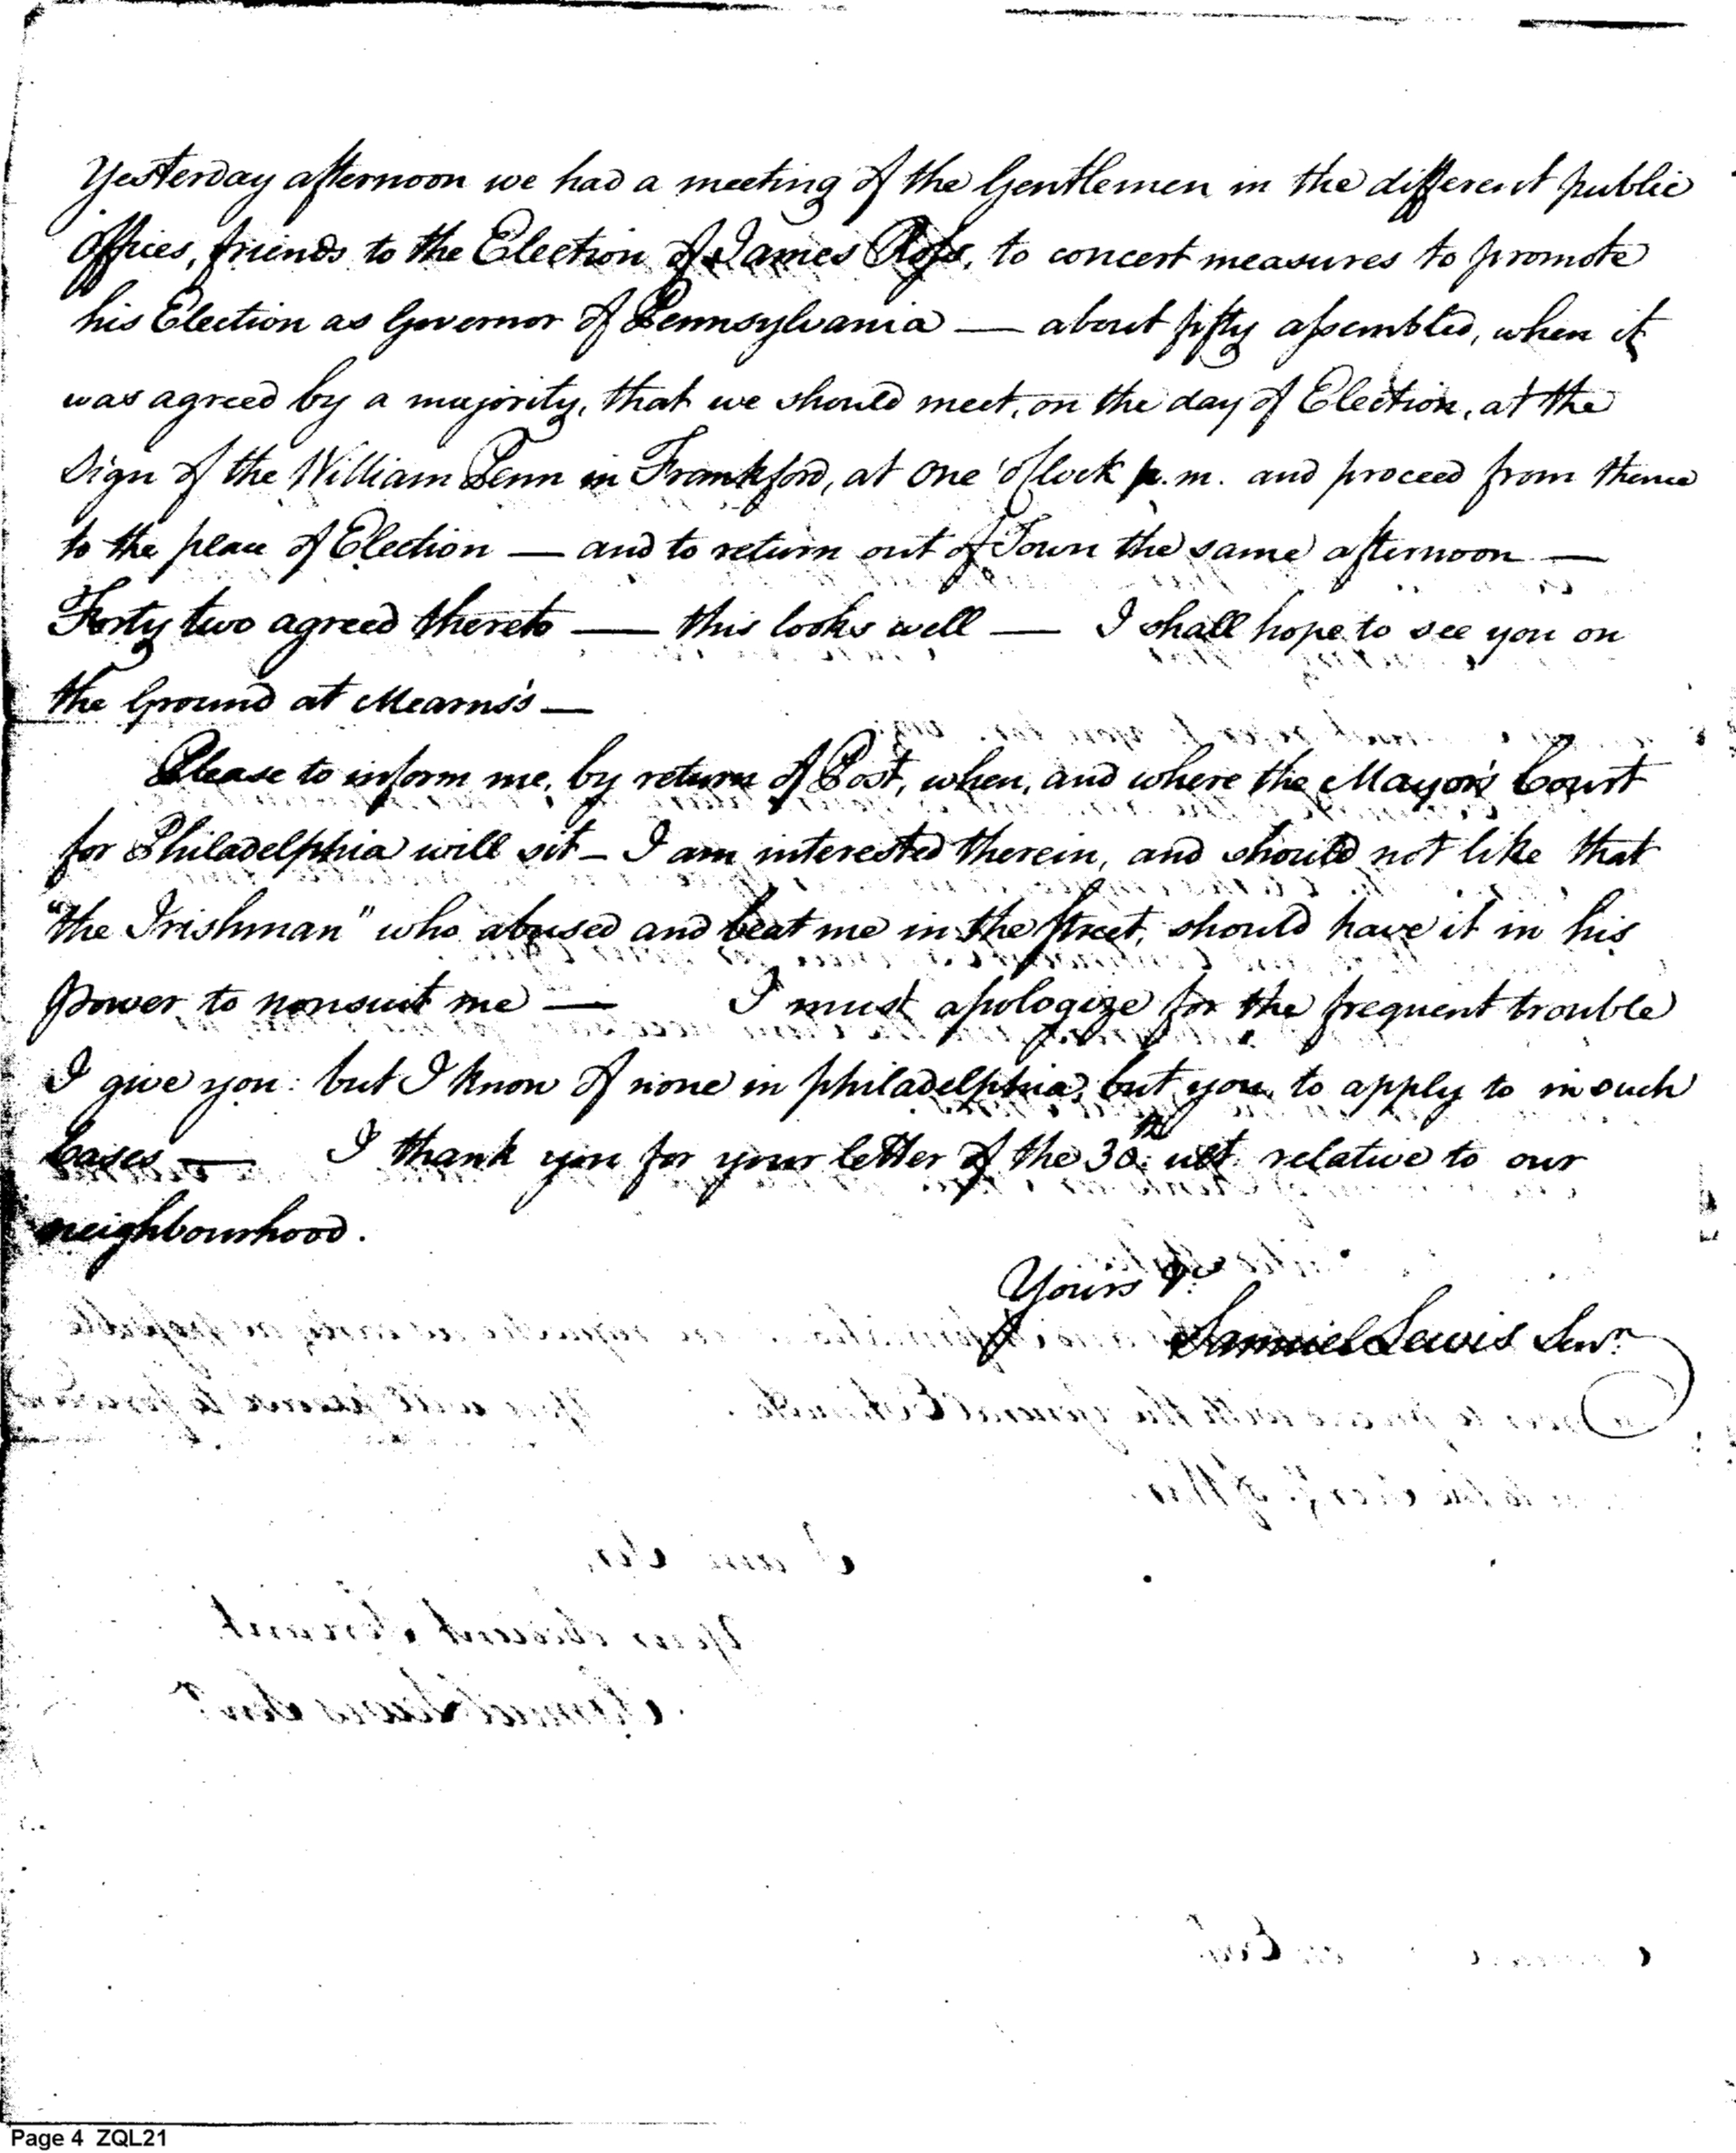 Yesterday afternoon we had a meeting of the Gentlemen in the different public
Offices, friends to the Election of James Ross, to concert measures to promote
his Election as Governor of Pennsylvania — about fifty assembled, when it
was agreed by a majority, that we should meet, on the day of Election, at the
Sign of the William Penn in Frankford, at One o'Clock p.m. and proceed from thence
to the place of Election — and to return out of Town the same afternoon —
Forty two agreed thereto — this looks well — I shall hope to see you on
the Ground at Mearns's —
Please to inform me, by return of Post, when, and where the Mayor's Court
for Philadelphia will sit — I am interested therein, and should not like that
"the Irishman" who abused and beat me in the Street, should have it in his
power to nonsuit me — I must apologize for the frequent trouble
I give you: but I know of none in philadelphia, but you, to apply to in such
Cases — I thank you for your letter of the 30th ult. relative to our
neighbourhood.
Yours &c
Samuel Lewis Senr.
I am Sir,
Your obedient Servant
Samuel Lewis Senr.
Page 4 ZQL21